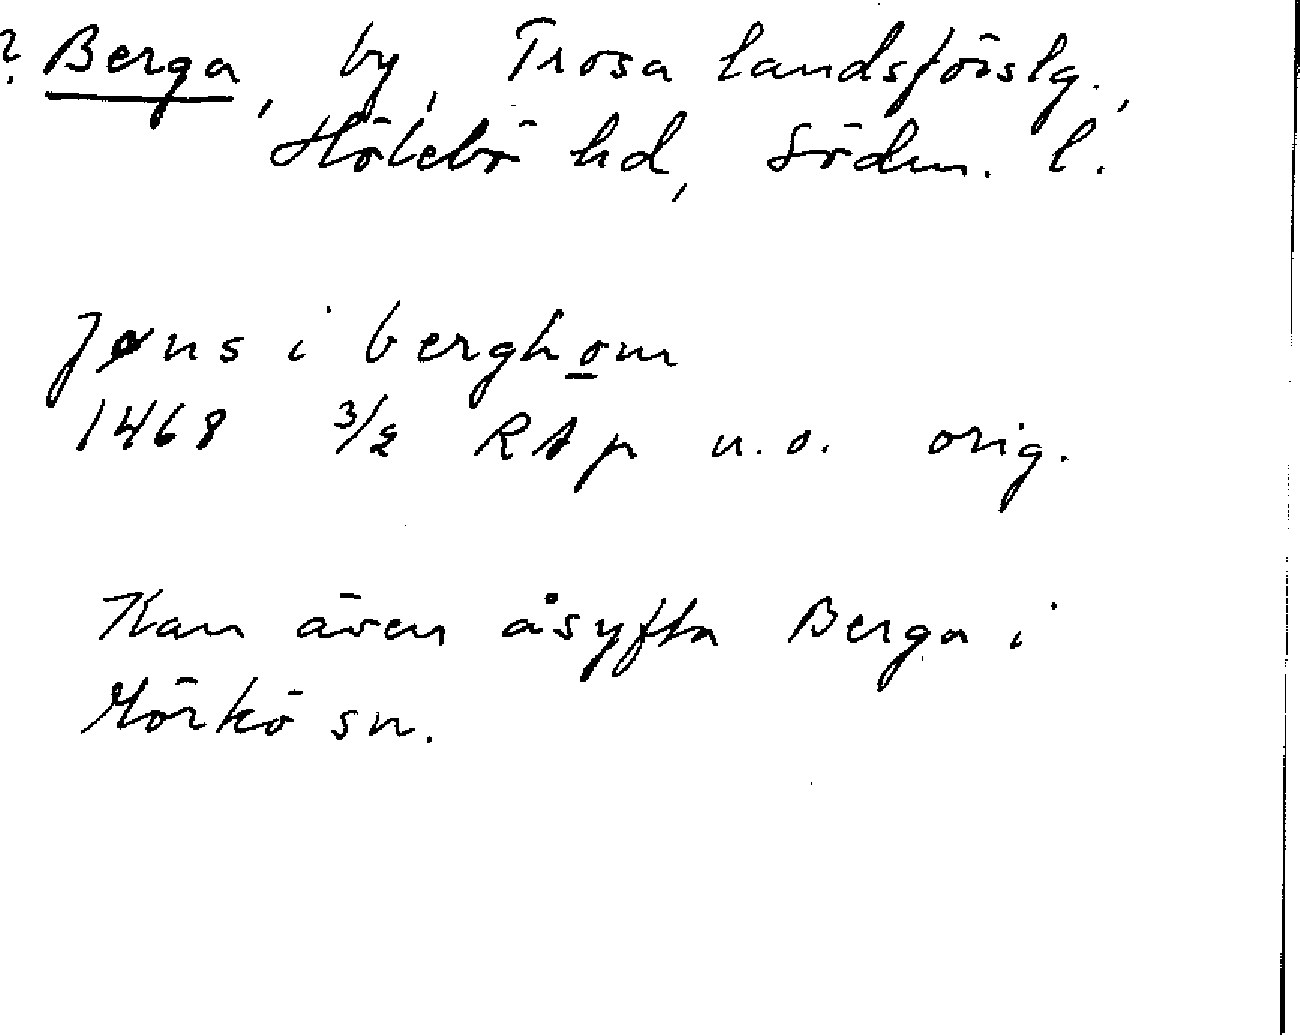 ? Berga, by, Trosa landsförslg.,
Hölebö hd, Södm. l.
Jøns i berghom
1468 3/2 RAp u.o. orig.
Kan även åsyfta Berga i
Mörkö sn.